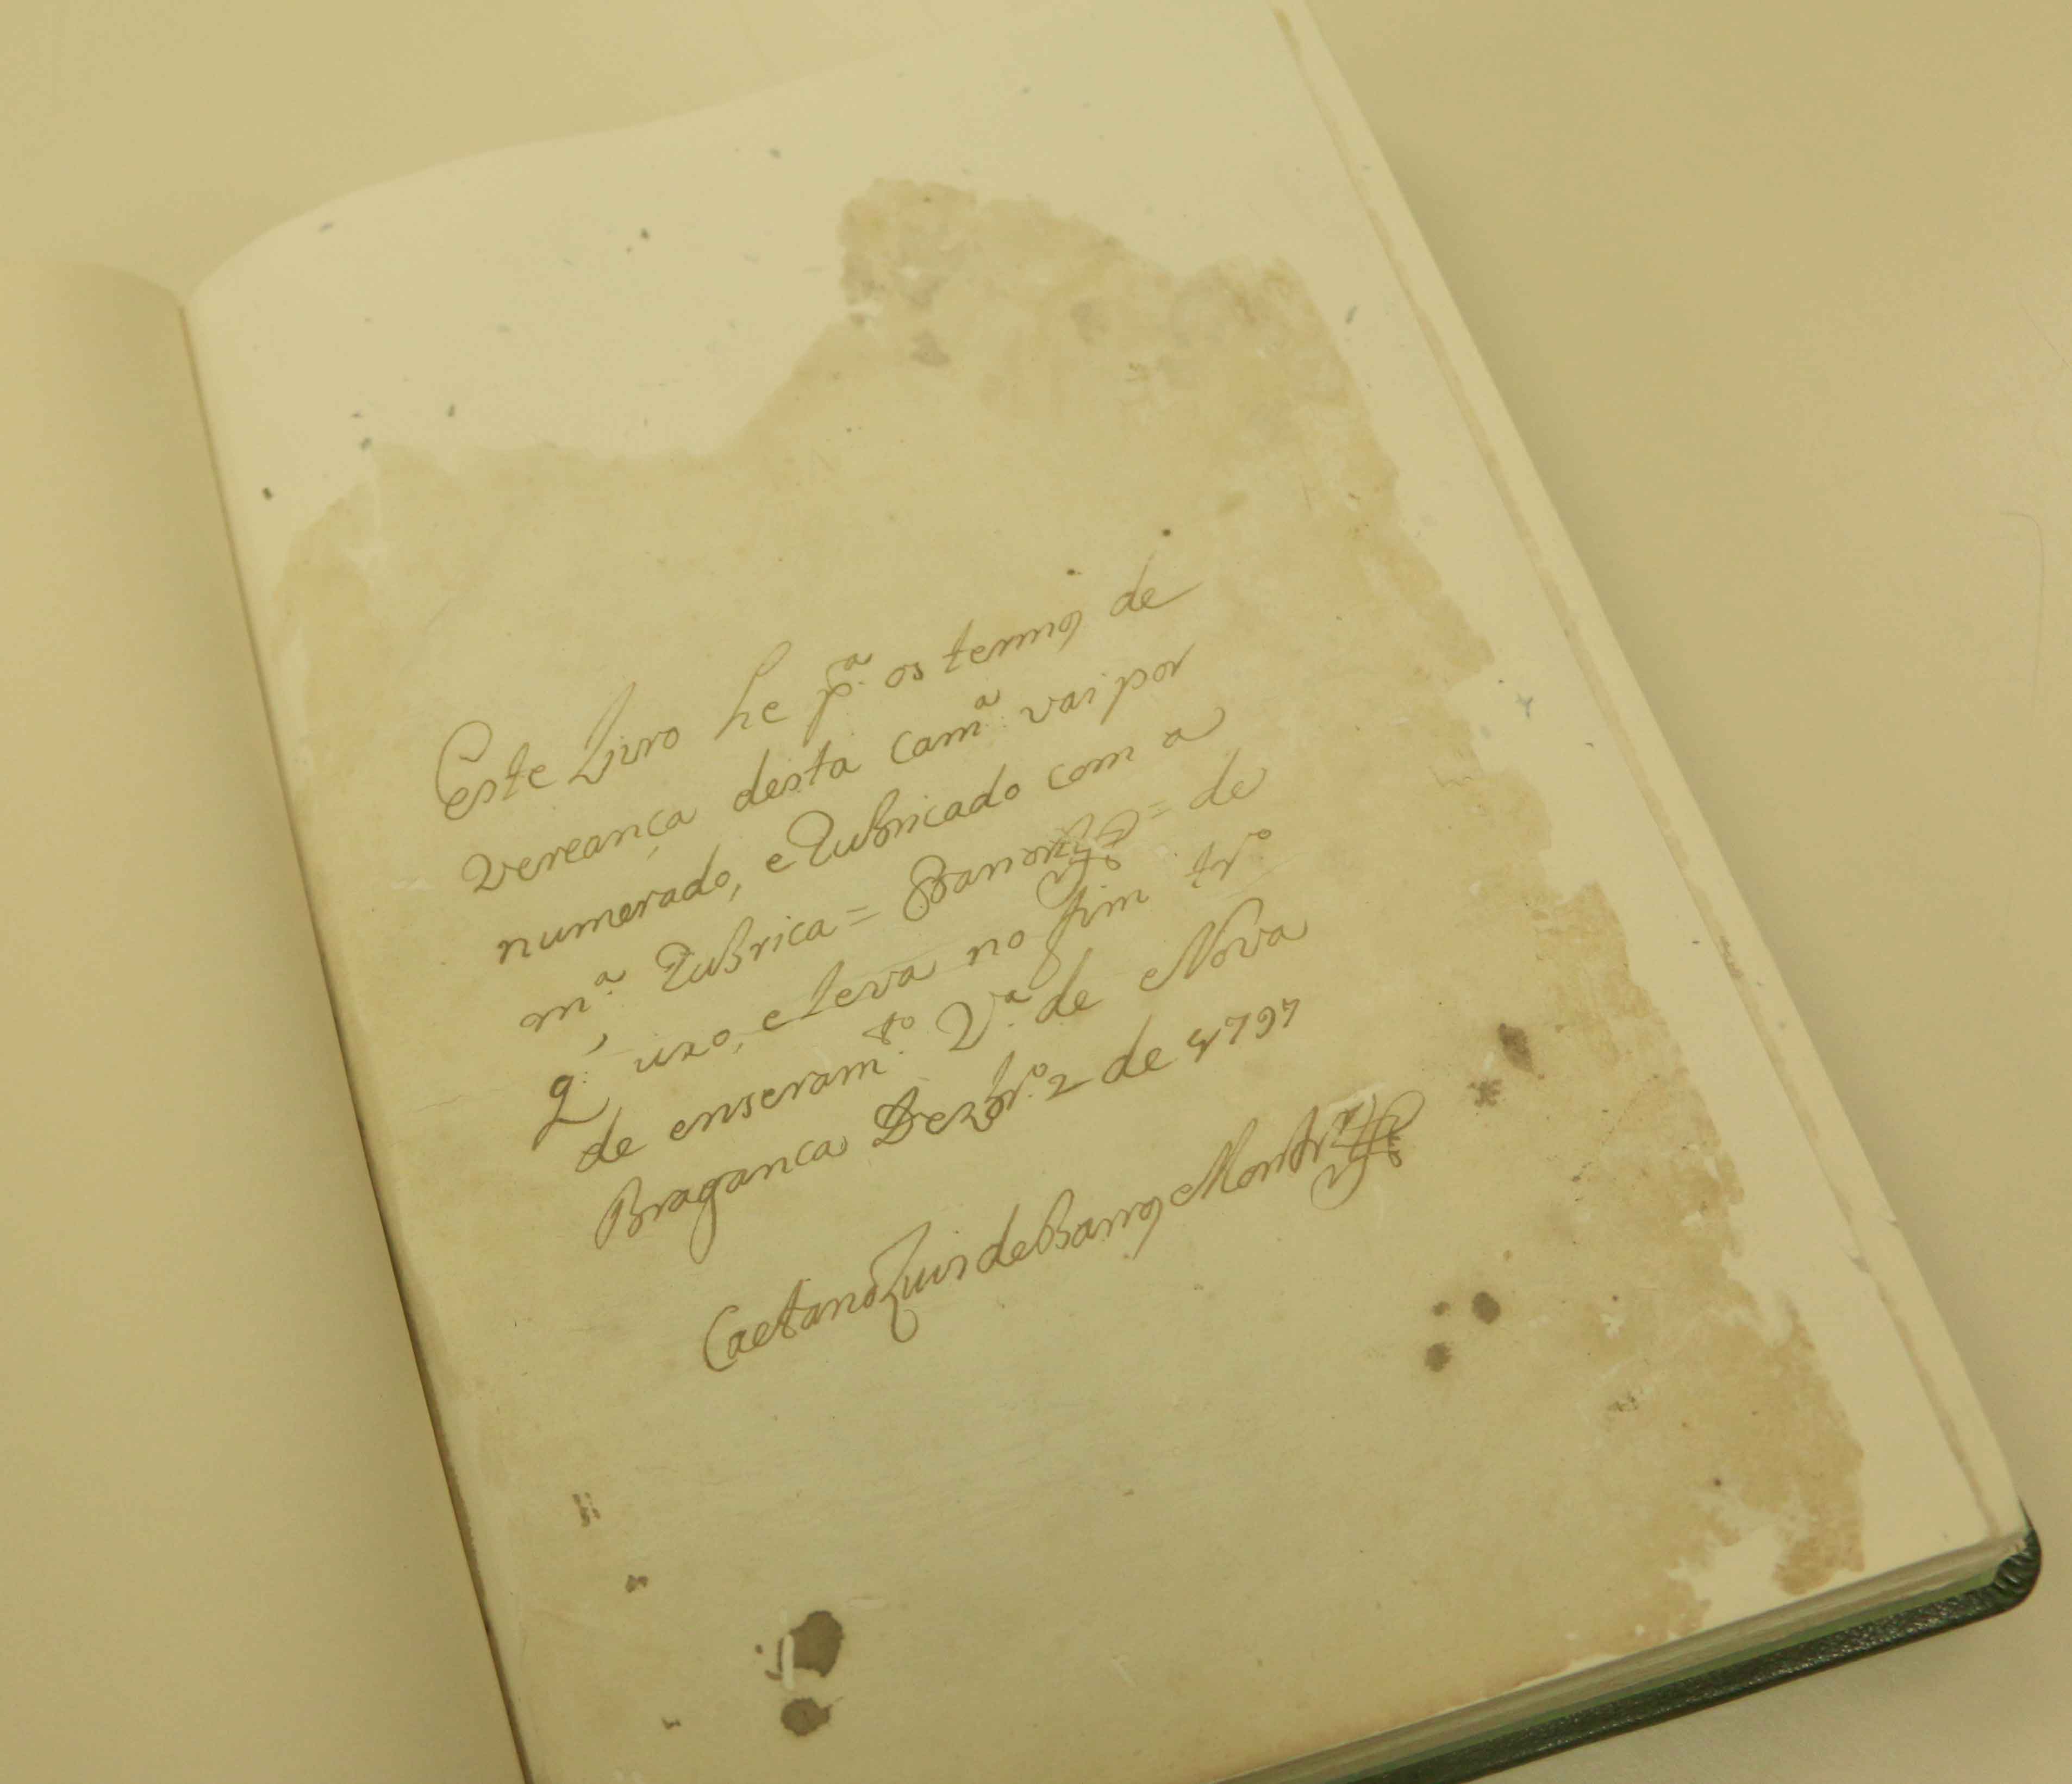 Este Livro he p.ª os termos de
vereança desta Cam.ª vai por
numerado, e Rubricado com a
m.ª Rubrica = Barros = de
q̃ uzo, e leva no fim tr.º
de enseram.to V.ª de Nova
Bragança Dezbr.º 2 de 1797
Caetano Luis de Barros Montr.º